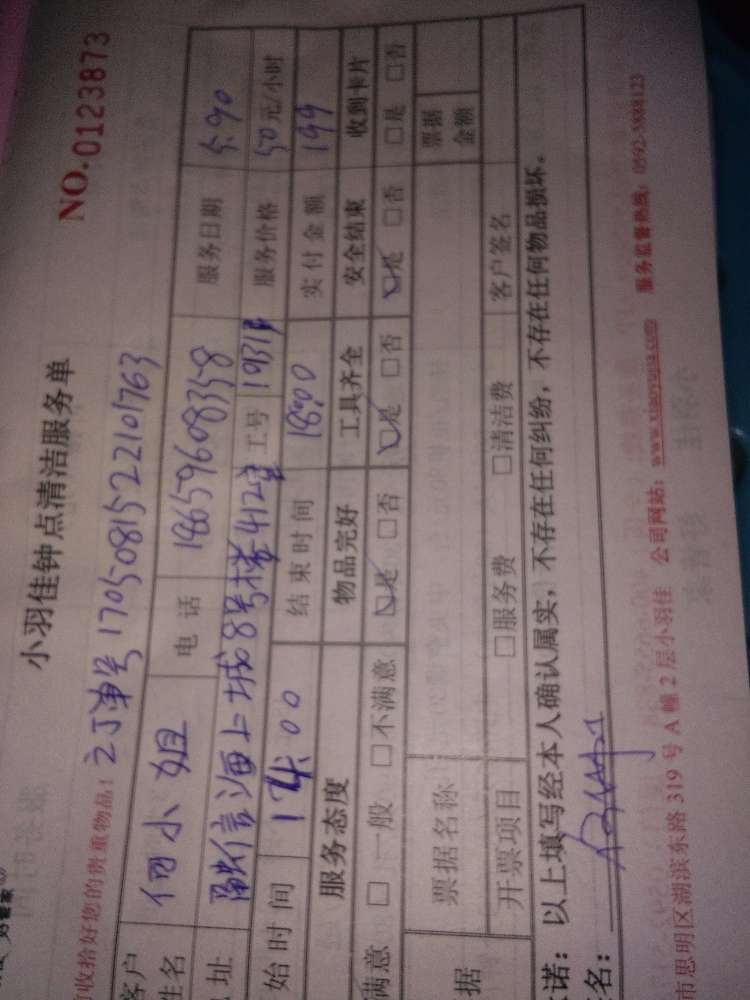 小羽佳钟点清洁服务单
NO.0123873
收拾好您的贵重物品!
订单号1705081522101763
客户
姓名 小姐 电话 18659608358 服务日期 5.90
址 融信海上城8号楼412室 工号 服务价格 50元/小时
始时间 14:00 结束时间 18:00 实付金额 199
服务态度 物品完好 工具齐全 安全结束 收到卡片
满意 □一般 □不满意 □是 □否 □是 □否 □是 □否 □是 □否
据 票据名称 票据
金额
开票项目 □服务费 □清洁费 客户签名
诺:以上填写经本人确认属实,不存在任何纠纷,不存在任何物品损坏。
名:
市思明区湖滨东路319号A幢2层小羽佳 公司网站:www.xiaoyujia.com 服务监督热线:0592-5888123